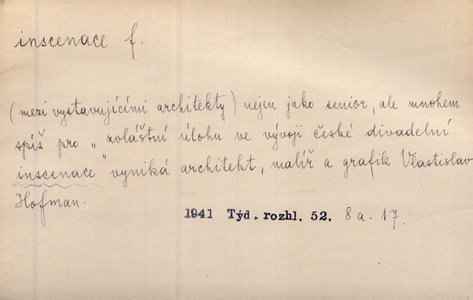 inscenace f.
(mezi vystavujícími architekty) nejen jako senior, ale mnohem
spíš pro „zvláštní úlohu ve vývoji české divadelní
inscenace" vyniká architekt, malíř a grafik Vlastislav
Hofman.
1941 Týd. rozhl. 52. 8 a. 17.